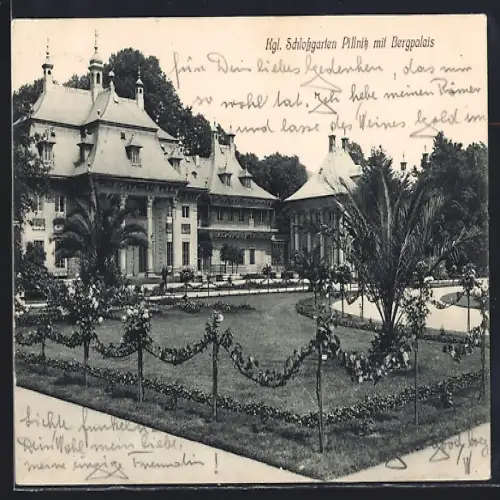 Kgl. Schloßgarten Pillnitz mit Bergpalais
für Dein liebes Gedenken, das mir
so wohl tat. Ich habe meinen Römer
und lasse des Weines Gold im
Lichte funkeln
Dein Wohl mein liebe,
meine einzige